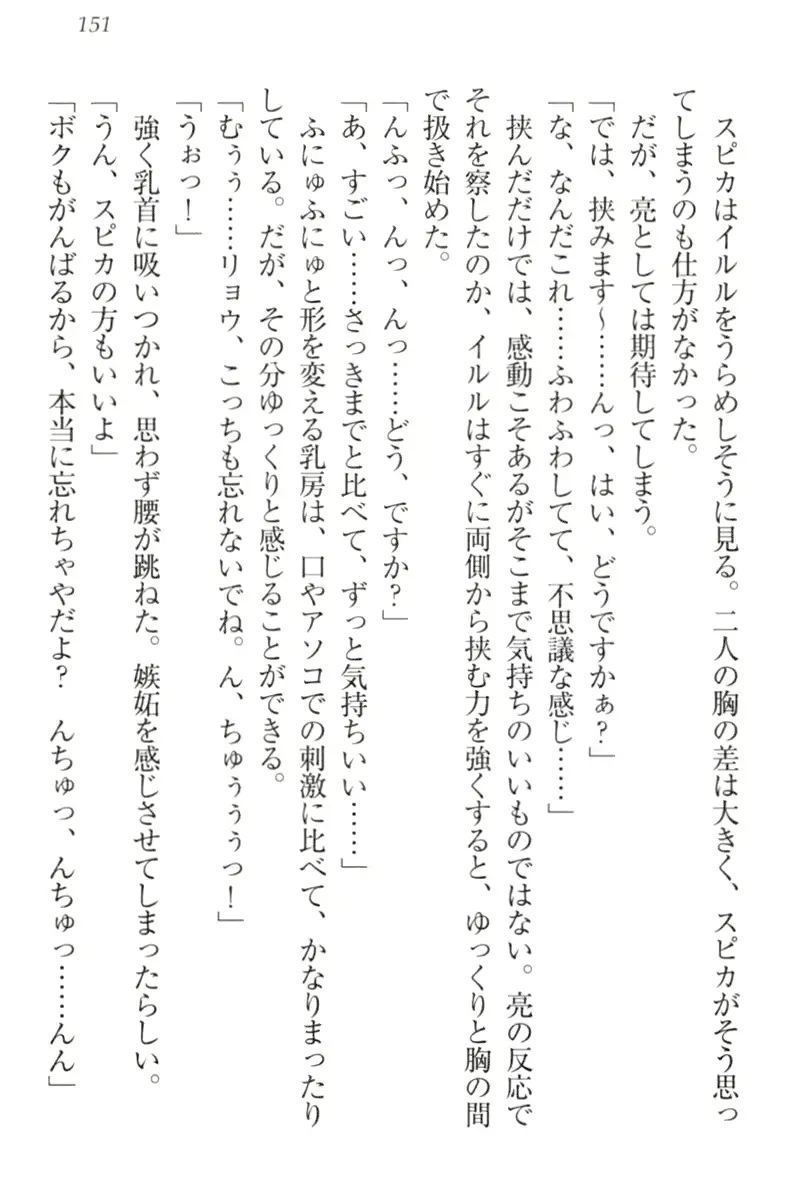 151
　スピカはイルルをうらめしそうに見る。二人の胸の差は大きく、スピカがそう思っ
てしまうのも仕方がなかった。
　だが、亮としては期待してしまう。
「では、挟みます～……んっ、はい、どうですかぁ？」
「な、なんだこれ……ふわふわしてて、不思議な感じ……」
　挟んだだけでは、感動こそあるがそこまで気持ちのいいものではない。亮の反応で
それを察したのか、イルルはすぐに両側から挟む力を強くすると、ゆっくりと胸の間
で扱き始めた。
「んふっ、んっ、んっ……どう、ですか？」
「あ、すごい……さっきまでと比べて、ずっと気持ちいい……」
　ふにゅふにゅと形を変える乳房は、口やアソコでの刺激に比べて、かなりまったり
している。だが、その分ゆっくりと感じることができる。
「むぅぅ……リョウ、こっちも忘れないでね。ん、ちゅぅぅぅっ！」
「うぉっ！」
　強く乳首に吸いつかれ、思わず腰が跳ねた。嫉妬を感じさせてしまったらしい。
「うん、スピカの方もいいよ」
「ボクもがんばるから、本当に忘れちゃやだよ？　んちゅっ、んちゅっ……んん」